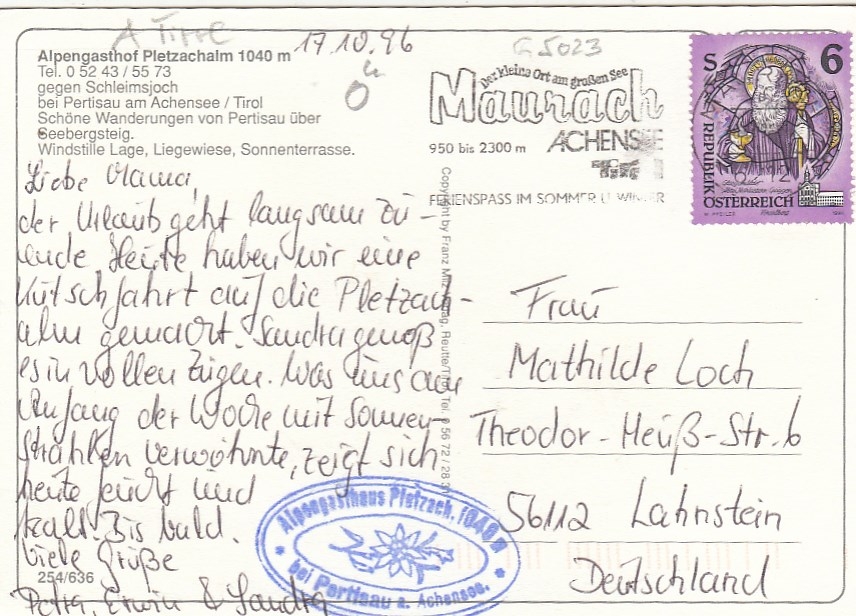 A Tirol
17.10.96
G 5023
Ö
Alpengasthof Pletzachalm 1040 m
Tel. 0 52 43 / 55 73
gegen Schleimsjoch
bei Pertisau am Achensee / Tirol
Schöne Wanderungen von Pertisau über
Seebergsteig.
Windstille Lage, Liegewiese, Sonnenterrasse.
Der kleine Ort am großen See
Maurach
ACHENSEE
950 bis 2300 m
FERIENSPASS IM SOMMER U. WINTER
S 6
REPUBLIK
ÖSTERREICH
Liebe Mama,
der Urlaub geht langsam zu-
ende. Heute haben wir eine
Kutschfahrt auf die Pletzach-
alm gemacht. Sandra genoß
es in vollen Zügen. Was uns am
Anfang der Woche mit Sonnen-
strahlen verwöhnte, zeigt sich
heute feucht und
kalt. Bis bald.
Viele Grüße
Petra, Erwin & Sandra
254/636
Copyright by Franz Verlag, Reutte/Tirol, Tel. 0 56 72 / 28
Frau
Mathilde Loch
Theodor-Heuß-Str. 6
56112 Lahnstein
Deutschland
Alpengasthaus Pletzach, 1040 m
bei Pertisau a. Achensee.